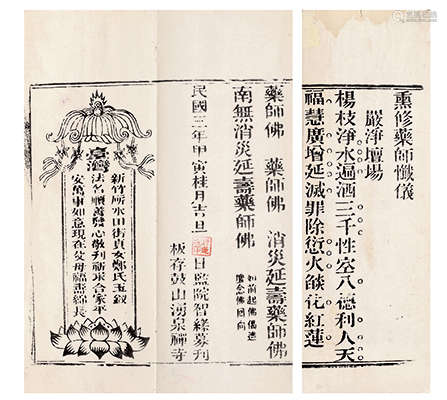 熏修藥師懺儀
嚴淨壇場
楊枝淨水遍洒三千性空八德利人天
福慧廣增延滅罪除愆火燄化紅蓮
藥師佛 藥師佛 消災延壽藥師佛
南無消災延壽藥師佛
念佛回向
民國三年甲寅桂月吉旦
日監院智緣募刊
板存鼓山湧泉禪寺
臺灣
新竹所水田街貞女鄭氏玉釵
法名順善發心敬刊祈求合家平
安萬事如意現在父母福壽綿長